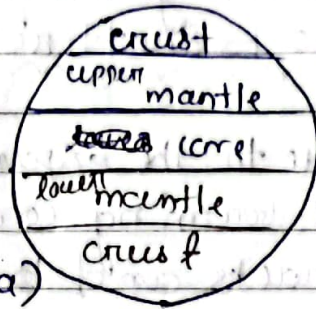 crust
upper
mantle
core
lower mantle
crust
a)